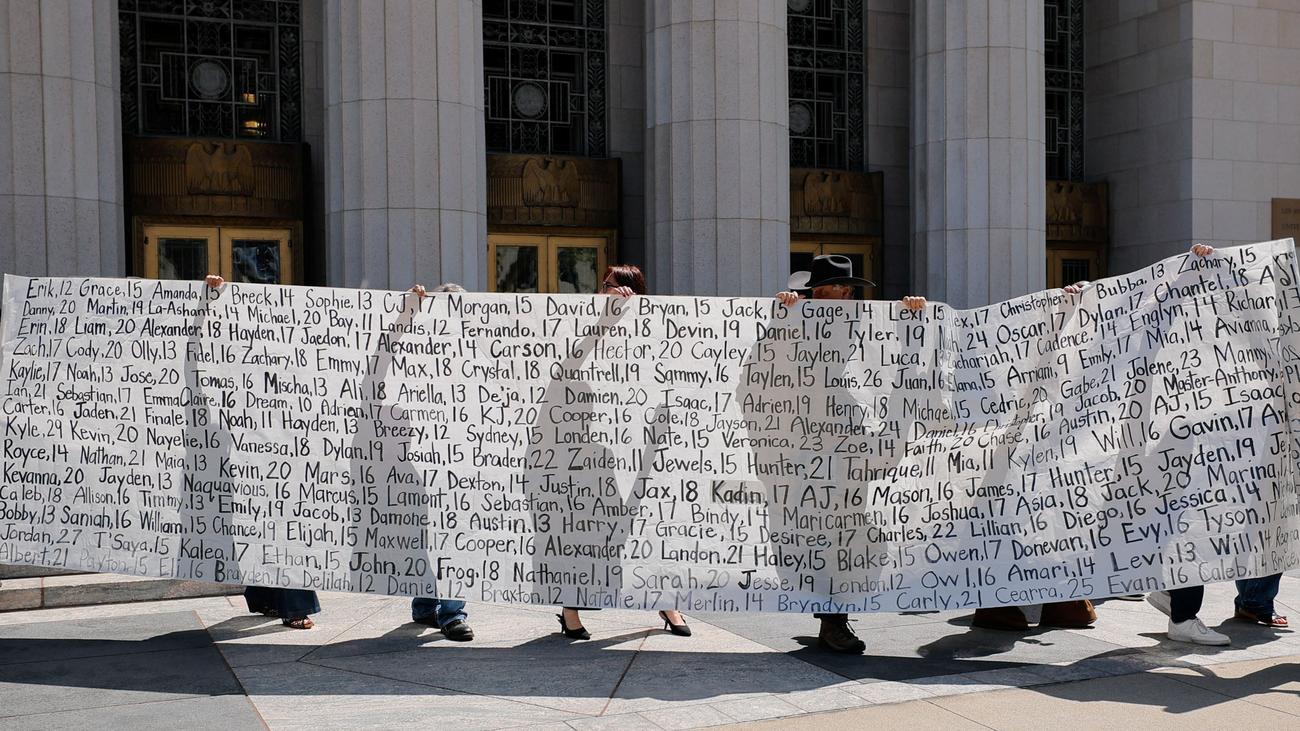 Erik,12 Grace,15 Amanda,15 Breck,14 Sophie,13 CJ,17 Morgan,15 David,16 Bryan,15 Jack,15 Gage,14 Lexi,15 Christopher, Bubba, 13 Zachary,15
Danny,20 Martin,14 La-Ashanti,14 Michael,20 Bay,11 Landis,12 Fernando,17 Lauren,18 Devin,19 Daniel,16 Tyler,19 24 Oscar,17 Dylan,14 Chantel,18
Erin,18 Liam,20 Alexander,18 Hayden,17 Jaedon,17 Alexander,14 Carson,16 Hector,20 Cayley,15 Jaylen,21 Luca, 17 Cadence, Englyn,14 Richar
Zach,17 Cody,20 Olly,13 Fidel,16 Zachary,18 Emmy,17 Max,18 Crystal,18 Quantrell,19 Sammy,16 Taylen,15 Louis,26 Juan,16 15 Arriani,9 Emily,17 Mia,14 Avianna,
Kaylie,17 Noah,13 Jose,20 Tomas,16 Mischa,13 Ali,18 Ariella,13 De'ja,12 Damien,20 Isaac,17 Adrien,19 Henry,18 Michael,15 Cedric,20 Gabe,21 Jolene,23 Manny,
Ian,21 Sebastian,17 EmmaClaire,16 Dream,10 Adrien,17 Carmen,16 KJ,20 Cooper,16 Cole,18 Jayson,21 Alexander,24 Daniel,16 Jacob,20 Master-Anthony,
Carter,16 Jaden,21 Finale,18 Noah,11 Hayden,13 Breezy,12 Sydney,15 Londen,16 Nate,15 Veronica,23 Zoe,14 Faith,20 Chase,16 Austin,20 AJ,15 Isaac,
Kyle,29 Kevin,20 Nayelie,16 Vanessa,18 Dylan,19 Josiah,15 Braden,22 Zaiden,11 Jewels,15 Hunter,21 Tahrique,11 Mia,11 Kylen,19 Will,16 Gavin,17
Royce,14 Nathan,21 Maia,13 Kevin,20 Mars,16 Ava,17 Dexton,14 Justin,18 Jax,18 Kadin,17 AJ,16 Mason,16 James,17 Hunter,15 Jayden,19
Kevanna,20 Jayden,13 Naquavious,16 Marcus,15 Lamont,16 Sebastian,16 Amber,17 Bindy,14 Maricarmen,18 Joshua,17 Asia,18 Jack,20 Marina,
Caleb,18 Allison,16 Timmy,13 Emily,19 Jacob,13 Damone,18 Austin,13 Harry,17 Gracie,15 Desiree,17 Charles,22 Lillian,16 Diego,16 Jessica,14
Bobby,13 Saniah,16 William,15 Chance,19 Elijah,15 Maxwell,17 Cooper,16 Alexander,20 Landon,21 Haley,15 Blake,15 Owen,17 Donevan,16 Evy,16 Tyson,
Jordan,27 T'Saya,15 Kalea,17 Ethan,15 John,20 Frog,18 Nathaniel,19 Sarah,20 Jesse,19 London,12 Owl,16 Amari,14 Levi,13 Will,14
Albert,21 Payton,15 Eli,16 Brayden,15 Delilah,12 Daniel,12 Braxton,12 Natalie,17 Merlin,14 Bryndyn,15 Carly,21 Cearra,25 Evan,16 Caleb,14